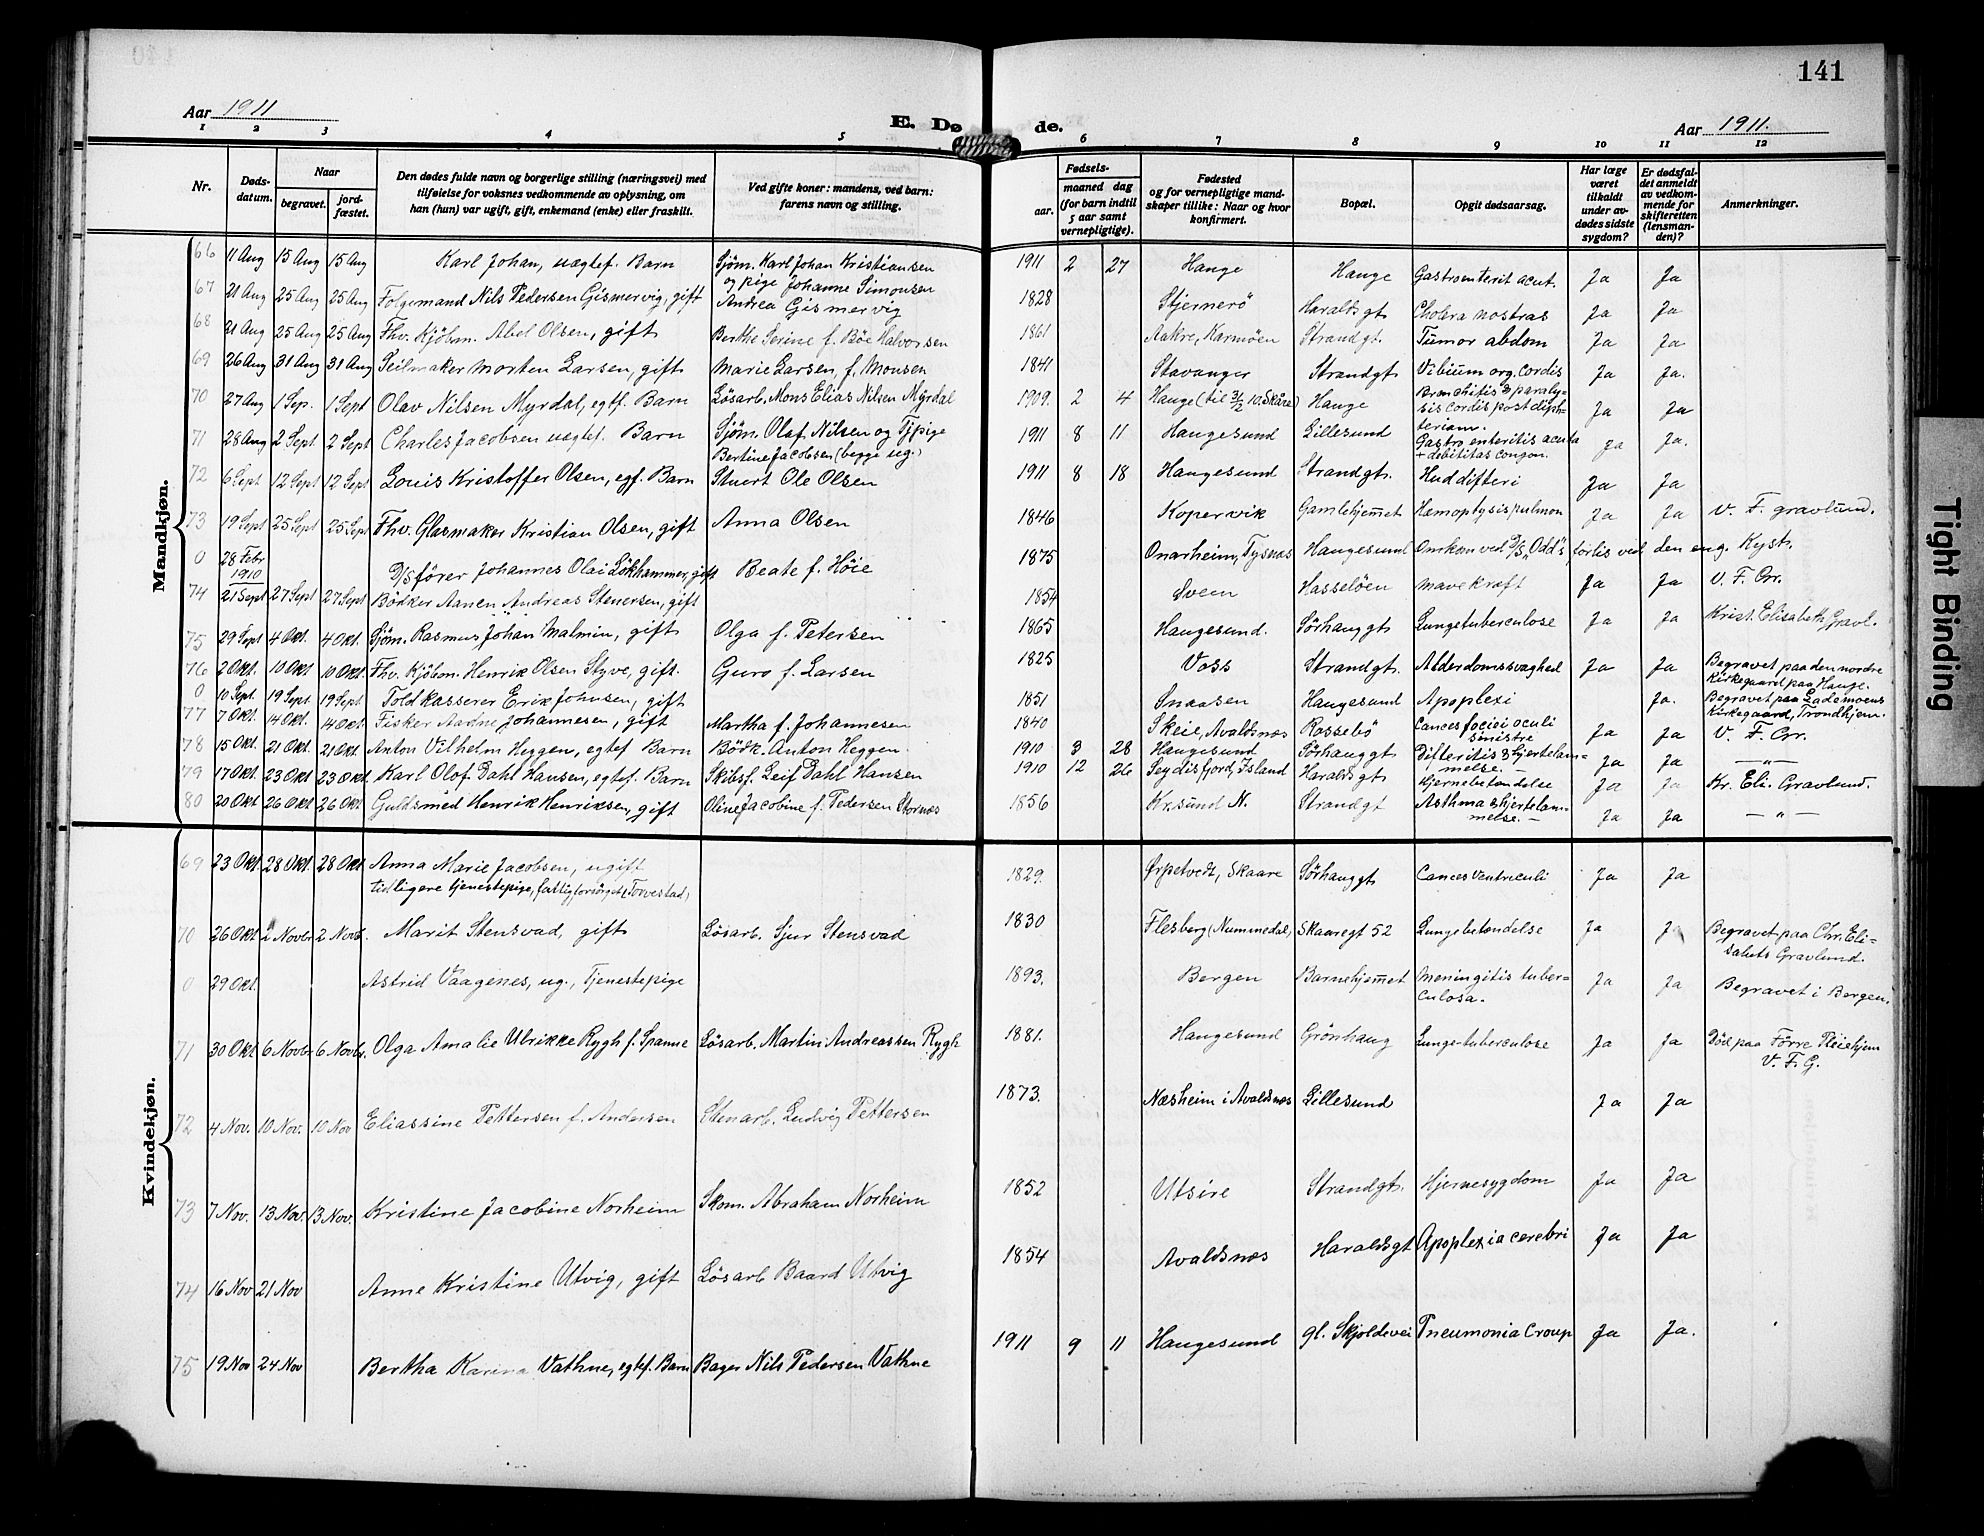 141
Aar 1911
E. Dø de.
Aar 1911.
1 2 3 4 5 6 7 8 9 10 11 12
Nr.
Døds-datum.
Naar
begravet.
jord-fæstet.
Den dødes fulde navn og borgerlige stilling (næringsvei) med
tilføielse for voksnes vedkommende av oplysning, om
han (hun) var ugift, gift, enkemand (enke) eller fraskilt.
Ved gifte koner: mandens, ved barn:
farens navn og stilling.
Fødsels-
aar.
maaned dag
(for barn indtil
5 aar samt
vernepligtige).
Fødested
og for vernepligtige mand-
skaper tillike: Naar og hvor
konfirmert.
Bopæl.
Opgit dødsaarsag.
Har læge
været
tilkaldt
under av-
dødes sidste
sygdom?
Er dødsfal-
det anmeldt
av vedkom-
mende for
skifteretten
(lensman-
den)?
Anmerkninger.
Mandkjøn.
66 11 Aug 15 Aug 15 Aug Karl Johan, uægtef. Barn Sjöm. Karl Johan Kristiansen og pige Johanne Simonsen 1911 2 27 Hauge Hauge Gastroenterit acut. Ja Ja
67 21 Aug 25 Aug 25 Aug Folgemand Nils Pedersen Gismervig, gift Andrea Gismervig 1828 Stjernerö Haraldsgt Cholera nostras Ja Ja
68 21 Aug 25 Aug 25 Aug Fhv. Kjöbm. Abel Olsen, gift Berthe Serine f. Böe Halvorsen 1861 Aakre, Karmöen Strandgt. Tumor abdom Ja Ja
69 26 Aug 31 Aug 31 Aug Seilmaker Morten Larsen, gift Marie Larsen, f. Monsen 1841 Stavanger Strandgt Vibium org. cordis Ja Ja.
70 27 Aug 1 Sep. 1 Sept Olav Nilsen Myrdal, egtf. Barn Lösarb. Mons Elias Nilsen Myrdal 1909. 2 4 Hauge (til 31/2 10. Skåre) Hauge Bronchitis & paraly-
sis cordis post diph-
teriam. Ja Ja
71 28 Aug 2 Sept 2 Sept Charles Jacobsen uægtef. Barn Sjöm. Olaf Nilsen og Tjpige
Bertine Jacobsen (begge ug.) 1911 8 11 Haugesund Lillesund Gastro enteritis acuta
+ debititas congen. Ja Ja.
72 6 Sept 12 Sept 12 Sept Louis Kristoffer Olsen, egf. Barn Stuert Ole Olsen 1911 8 18 Haugesund Strandgt. Huddifteri Ja Ja
73 19 Sept 25 Sept 25 Sept Fhv. Glasmaker Kristian Olsen, gift Anna Olsen 1846 Kopervik Gamlehjem̅et Hemoptysis pulmon Ja Ja V. F. gravlund.
0 28 Febr 1910 D/S förer Johannes Olai Lökhammer, gift Beate f. Höie 1875 Onarheim, Tysnæs Haugesund Omkom ved D/S, Odd's forlis ved den eng. Kyst.
74 21 Sept 27 Sept 27 Sept Bödker Aanen Andreas Stenersen, gift 1854 Sveen Hasselöen mavekræft Ja Ja V. F. Gr.
75 29 Sept 4 Okt. 4 Okt. Sjöm. Rasmus Johan Malmin, gift Olga f. Petersen 1865 Haugesund. Sörhauggt Lungetuberculose Ja Ja Krist. Elisabeth Gravl.
76 2 Okt. 10 Okt 10 Okt Fhv. Kjöbm. Henrik Olsen Styve, gift. Guro f. Larsen 1825 Voss Strandgt. Alderdomssvaghed Ja Ja Begravet paa den nordre
Kirkegaard paa Hauge.
0 10 Sept. 19 Sept 19 Sept. Toldkasserer Erik Johnsen, gift 1851 Snaasen Haugesund Apoplexi Ja. Begravet paa Lademoens
Kirkegaard, Trondhjem.
77 7 Okt. 14 Okt. 14 Okt. Fisker Aadne Johannesen, gift Martha f. Johannesen 1840 Skeie, Avaldsnæs Rossebö Cances faciei oculi
sinistre Ja Ja V. F. Gr.
78 15 Okt. 21 Okt. 21 Okt. Anton Vilhelm Heggen, egtef Barn Bödk. Anton Heggen. 1910 3 28 Haugesund Sörhauggt Difteritis & hjertelam-
melse. Ja Ja — " —
79 17 Okt. 23 Okt. 23 Okt. Karl Olof Dahl Hansen, egtef. Barn Skibsf. Leif Dahl Hansen 1910 12 26 Seydisfjord, Island Haraldsgt Hjernebetændelse Ja Ja Kr. Eli. Gravlund.
80 20 Okt 26 Okt 26 Okt. Guldsmed Henrik Henriksen, gift Oline Jacobine f. Pedersen Stornæs 1856 Kr.sund N. Strandgt Asthma & hjertelam-
melse. — Ja Ja — " —
Kvindekjøn.
69 23 Okt. 28 Okt. 28 Okt Anna Marie Jacobsen, ugift
tidligere tjenestepige, fattigforsörget, (Torvestad) 1829. Ørpetvedt, Skaare Sörhauggt Cances ventriculi Ja Ja
70 26 Okt 2 Novbr 2 Novb. Marit Stensvad, gift Lösarb. Sjur Stensvad 1830 Flesberg (Nummedal) Skaaregt 52 Lungebetændelse Ja Ja Begravet paa Chr. Eli-
sabets Gravlund.
0 29 Okt. Astrid Vaagenes, ug., Tjenestepige 1893. Bergen Barnehjem̅et Meningitis tuber-
culosa. Ja Ja Begravet i Bergen.
71 30 Okt 6 Novbr 6 Novbr. Olga Amalie Ulrikke Rygh f. Spanne Lösarb. Martin Andreassen Rygh 1881. Haugesund Grönhaug Lunge-tuberculose Ja Ja Död paa Förre Pleiehjem
V. F. G.
72 4 Nov. 10 Nov. 10 Nov Eliassine Pettersen f. Andersen Stenarb. Ludvig Pettersen 1873. Næsheim i Avaldsnæs Lillesund Ja Ja
73 7 Nov. 13 Nov. 13 Nov. Kristine Jacobine Norheim Skom. Abraham Norheim 1852 Utsire Strandgt. Hjernesygdom Ja Ja
74 16 Nov 21 Nov Anne Kristine Utvig, gift Lösarb Baard Utvig 1854 Avaldsnæs Haraldsgt Apoplexia cerebri Ja Ja
75 19 Nov 24 Nov Bertha Karina Vathne, egtef. Barn Bager Nils Pedersen Vathne 1911 9 11 Haugesund gl. Skjoldevei Pneumonia Croup Ja Ja.
Tight Binding